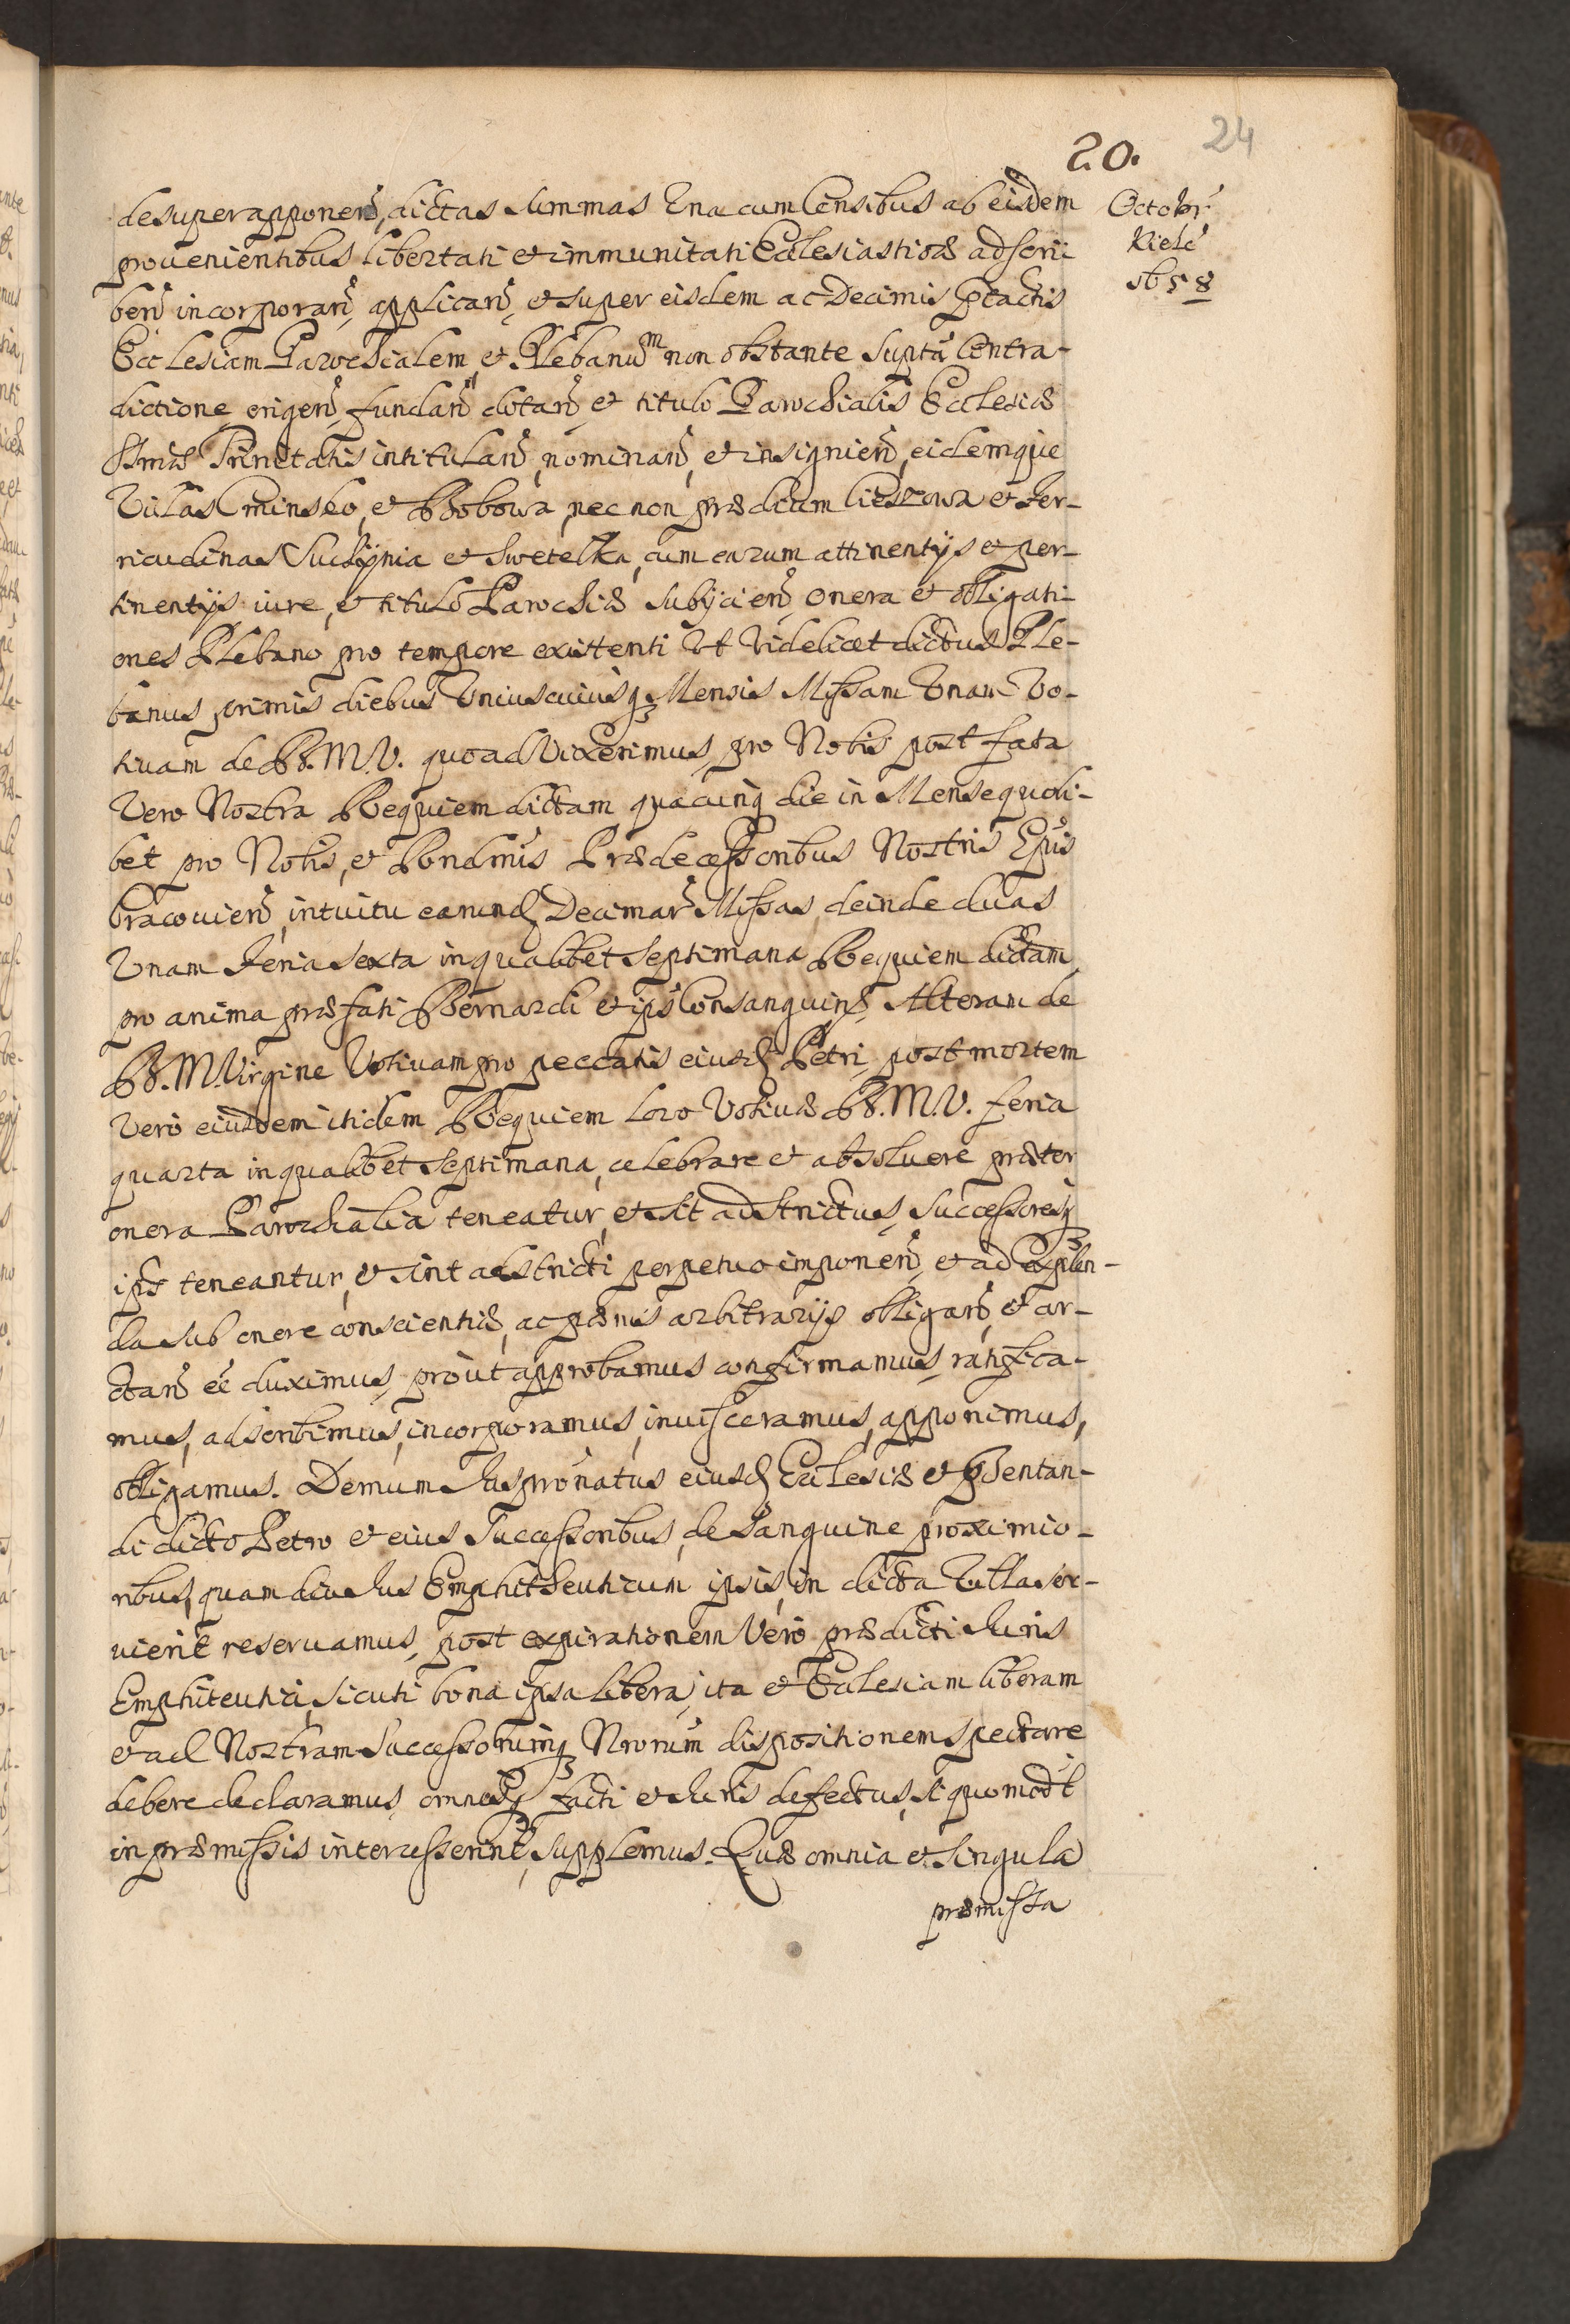 24
20.
Octobr̃
Kielc̃
1658
desuper apponeñ, dictas summas Una cum Censibus ab eisdem
prouenientibus libertati et immunitati Ecclesiasticæ adscri-
beñ incorporañ, applicañ, et super eisdem ac Decimis ptactis
Ecclesiam Parochialem et Plebanum non obstante suptã Contra-
dictione erigeñ, fundañ dotañ et titulo Parochialis Ecclesiæ
SSmæ Trinitatis intitulañ, nominañ, et insignieñ, eidemque
Villas Cminsko, et Bobowa, nec non prædium Cieszowa et Fer-
ricudinas Suchynia et Swetelka, cum earum attinentijs et per-
tinentijs iure, et titulo Parochiæ subijcieñ, onera et obligati-
ones Plebano pro tempore existenti Ut Videlicet dictus Ple-
banus primis diebus Uniuscuiusq; Mensis Missam Unam Vo-
tiuam de B. M. V. quoad Vixerimus, pro Nobis post fata
Vero Nostra Requiem dictam quacunq; die in Mense quoli-
bet pro Nobis, et Rondmis Prædecessoribus Nostris Epis
Cracouień, intuitu earund; Decimar̃ Missas, deinde duas
Unam Feria sexta in qualibet Septimana Requiem dictam,
pro anima præfati Bernardi et ips̃ Consanguineor̃, Alteram de
B. M. Virgine Votiuam pro peccatis eiusd; Petri, post mortem
Vero eiusdem itidem Requiem loco Votiuæ B. M. V. feria
quarta in qualibet Septimana, celebrare et absoluere præter
onera Parochialia teneatur, et sit adstrictus, Successoresq;
ips̃ teneantur, et sint adstricti perpetuo imponeñ, et ad explen-
da sub onere conscientiæ, ac pænis arbitrarijs obligañ, et ar-
ctañ eẽ duximus, prout approbamus confirmamus, ratifica-
mus, adscribimus, incorporamus, inuisceramus, apponimus,
obligamus. Demum Juspronatus eiusd; Ecclesiæ et psentan-
di dicto Petro et eius Successoribus, de Sanguine proximio-
ribus, quam diu Jus Emphitheuticum ipsis, in dicta Villa ser-
uierit reseruamus, post expirationem Vero prædicti Juris
Emphiteutici, sicuti bona ipsa libera, ita et Ecclesiam liberam
et ad Nostram Successorumq; Nrorum dispositionem spectare
debere declaramus, omnesq; facti et Juris defectus, si quomodl̃t
in præmissis intercesserint, supplemus. Quæ omnia et singula
præmissa